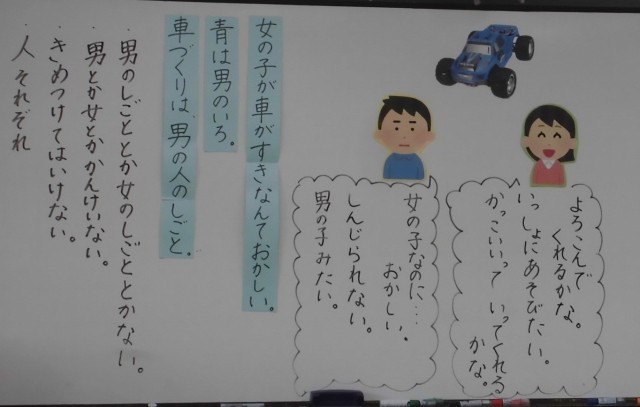 よろこんで
くれるかな。
いっしょにあそびたい。
かっこいいって いってくれる
かな。
女の子なのに…
おかしい、
しんじられない。
男の子みたい。
女の子が車がすきなんておかしい。
青は男のいろ。
車づくりは、男の人のしごと。
・男のしごととか女のしごととかない。
・男とか女とかかんけいない。
・きめつけてはいけない。
・人それぞれ